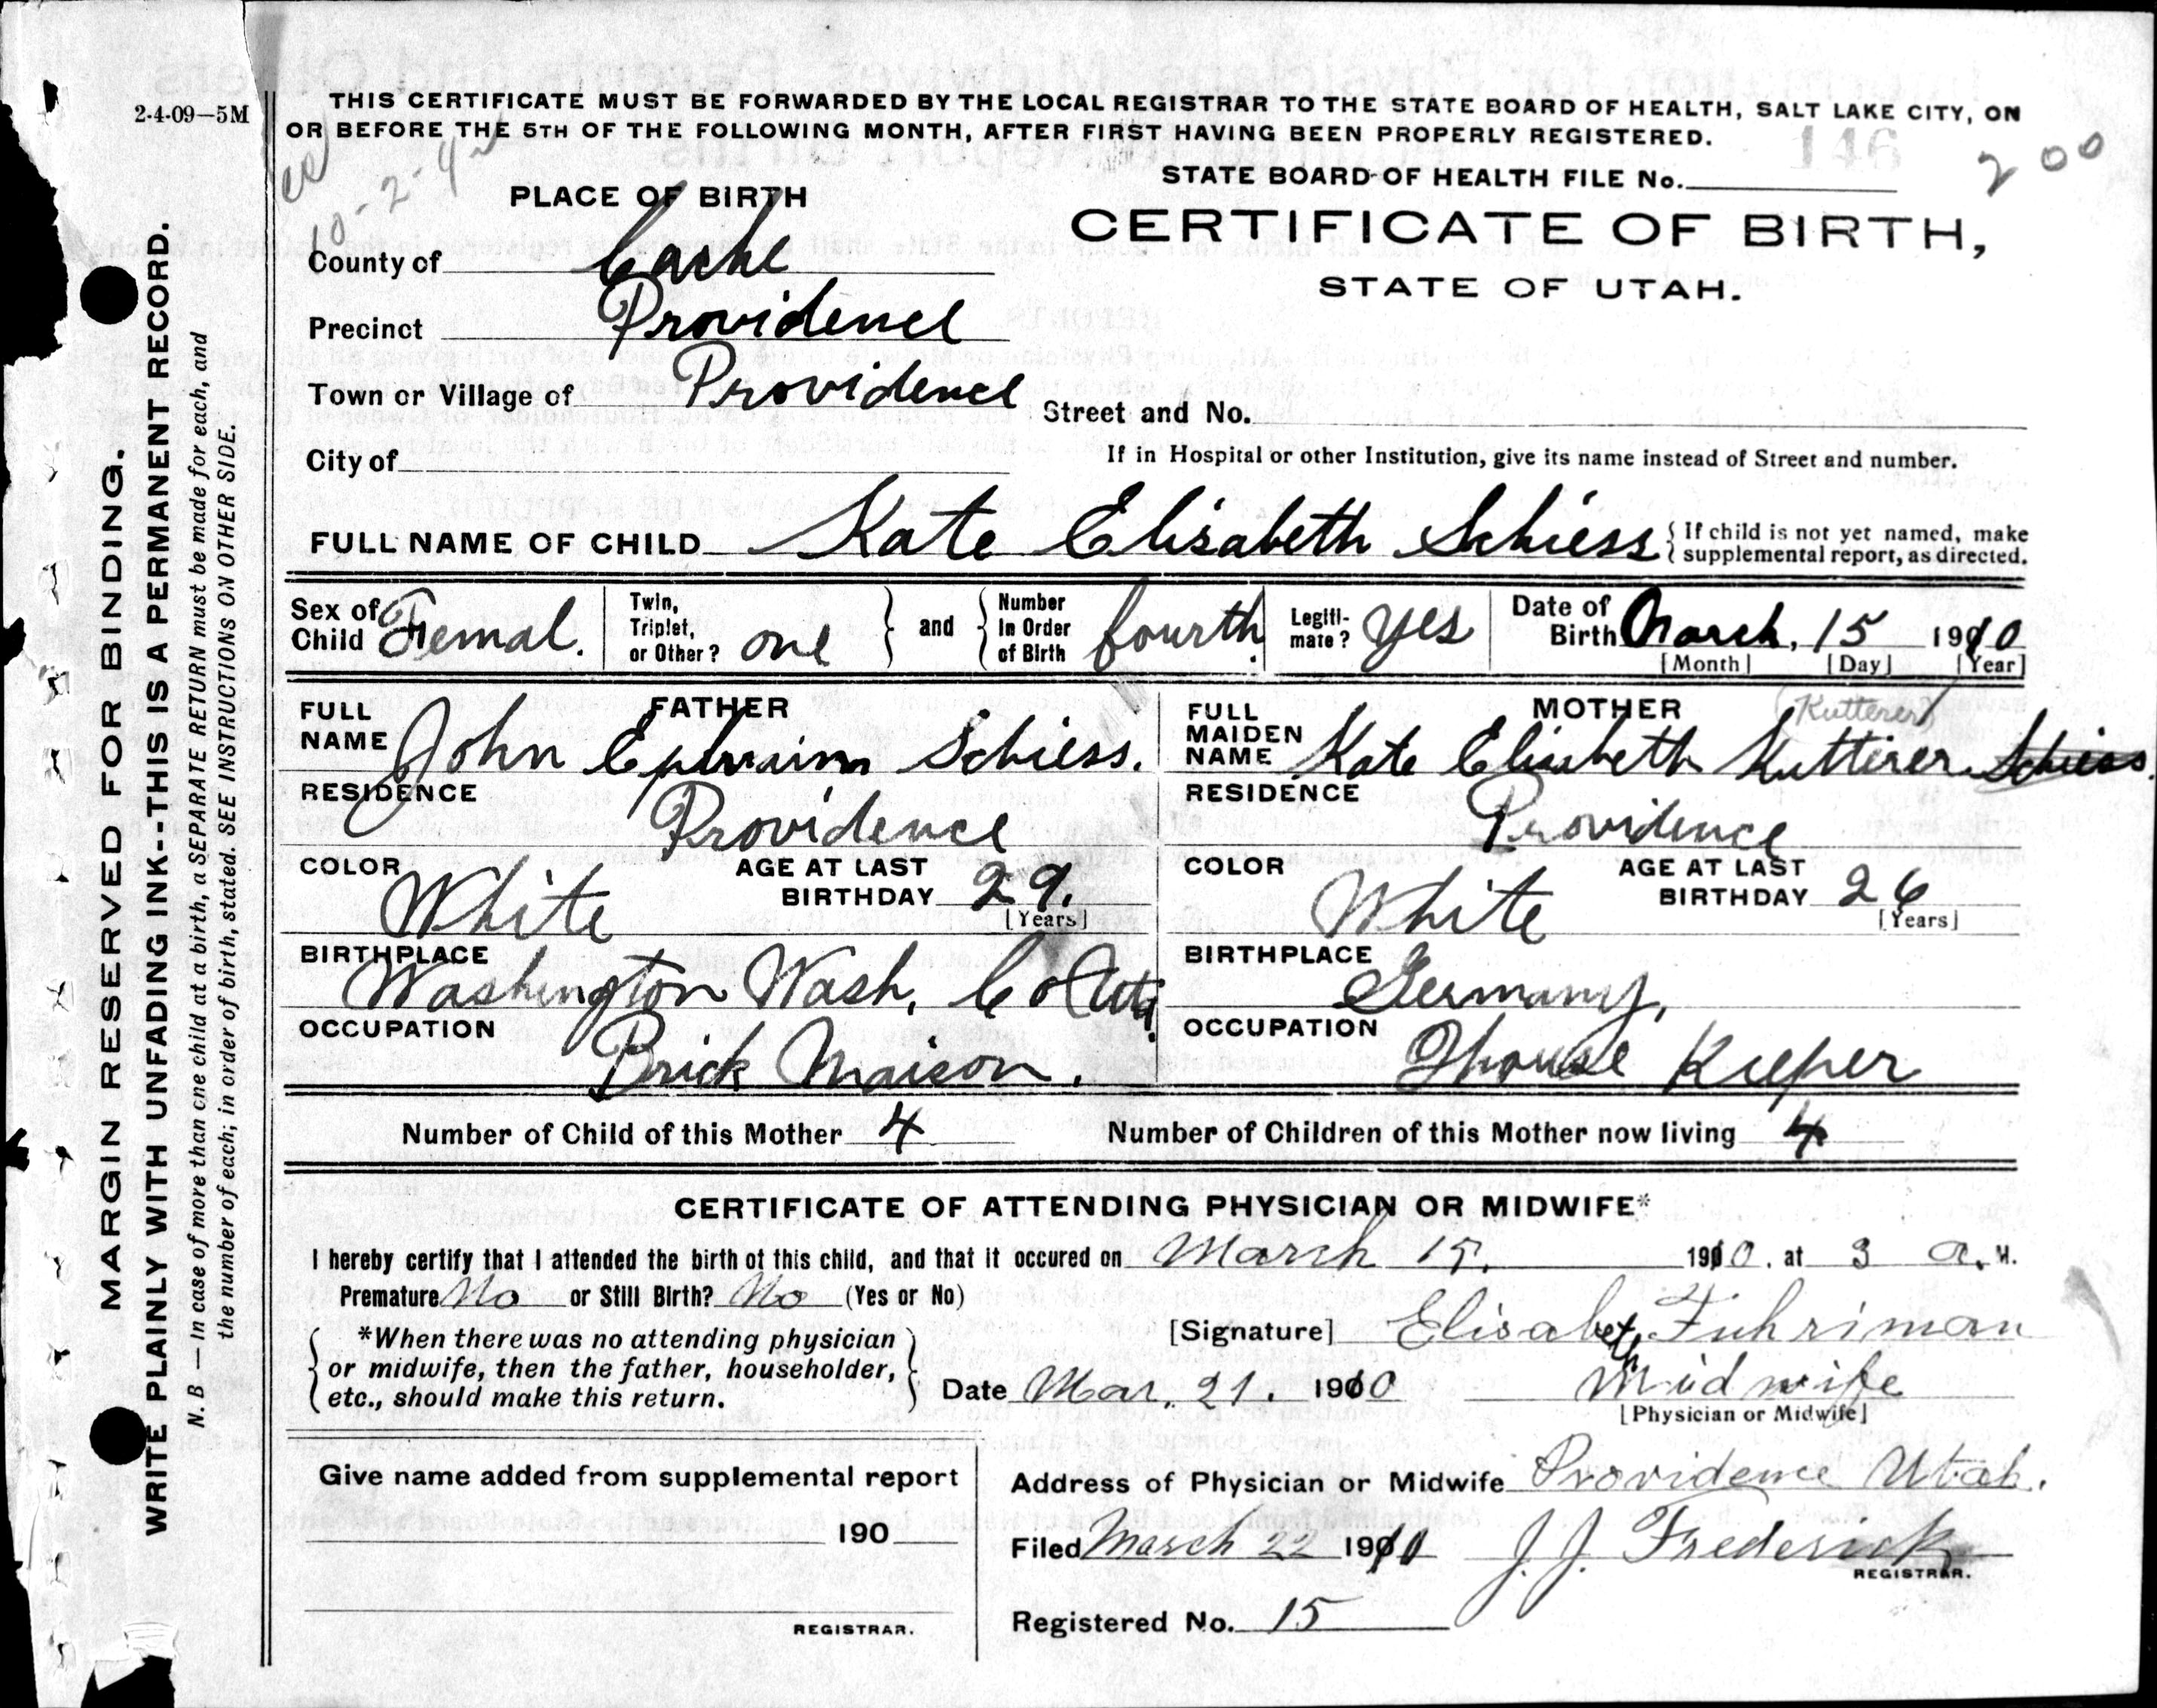 2-4-09—5M
THIS CERTIFICATE MUST BE FORWARDED BY THE LOCAL REGISTRAR TO THE STATE BOARD OF HEALTH, SALT LAKE CITY, ON
OR BEFORE THE 5TH OF THE FOLLOWING MONTH, AFTER FIRST HAVING BEEN PROPERLY REGISTERED.
146
200
STATE BOARD OF HEALTH FILE No.
PLACE OF BIRTH
CERTIFICATE OF BIRTH,
STATE OF UTAH.
County of Cache
Precinct Providence
Town or Village of Providence Street and No.
City of
If in Hospital or other Institution, give its name instead of Street and number.
FULL NAME OF CHILD Kate Elisabeth Schiess { If child is not yet named, make
supplemental report, as directed.
Sex of Child Femal. Twin, Triplet, or Other? one } and { Number In Order of Birth fourth. Legiti-mate? yes Date of Birth March, 15 1910
[Month] [Day] [Year]
FATHER
FULL NAME John Ephraim Schiess.
RESIDENCE Providence
COLOR White AGE AT LAST BIRTHDAY 29.
[Years]
BIRTHPLACE Washington Wash. Co Uta.
OCCUPATION Brick Maison.
MOTHER (Kutterer)
FULL MAIDEN NAME Kate Elisabeth Kutterer Schiess.
RESIDENCE Providence
COLOR White AGE AT LAST BIRTHDAY 26
[Years]
BIRTHPLACE Germany,
OCCUPATION House Keeper
Number of Child of this Mother 4 Number of Children of this Mother now living 4
CERTIFICATE OF ATTENDING PHYSICIAN OR MIDWIFE*
I hereby certify that I attended the birth of this child, and that it occured on March 15. 1910. at 3 a. M.
Premature No or Still Birth? No (Yes or No)
*When there was no attending physician
or midwife, then the father, householder,
etc., should make this return.
[Signature] Elisabeth Fuhriman
Date Mar. 21. 1910 Midwife
[Physician or Midwife]
Give name added from supplemental report
190
REGISTRAR.
Address of Physician or Midwife Providence Utah.
Filed March 22 1910 J. J. Frederick
REGISTRAR.
Registered No. 15
MARGIN RESERVED FOR BINDING.
WRITE PLAINLY WITH UNFADING INK--THIS IS A PERMANENT RECORD.
N. B — In case of more than one child at a birth, a SEPARATE RETURN must be made for each, and
the number of each; in order of birth, stated. SEE INSTRUCTIONS ON OTHER SIDE.